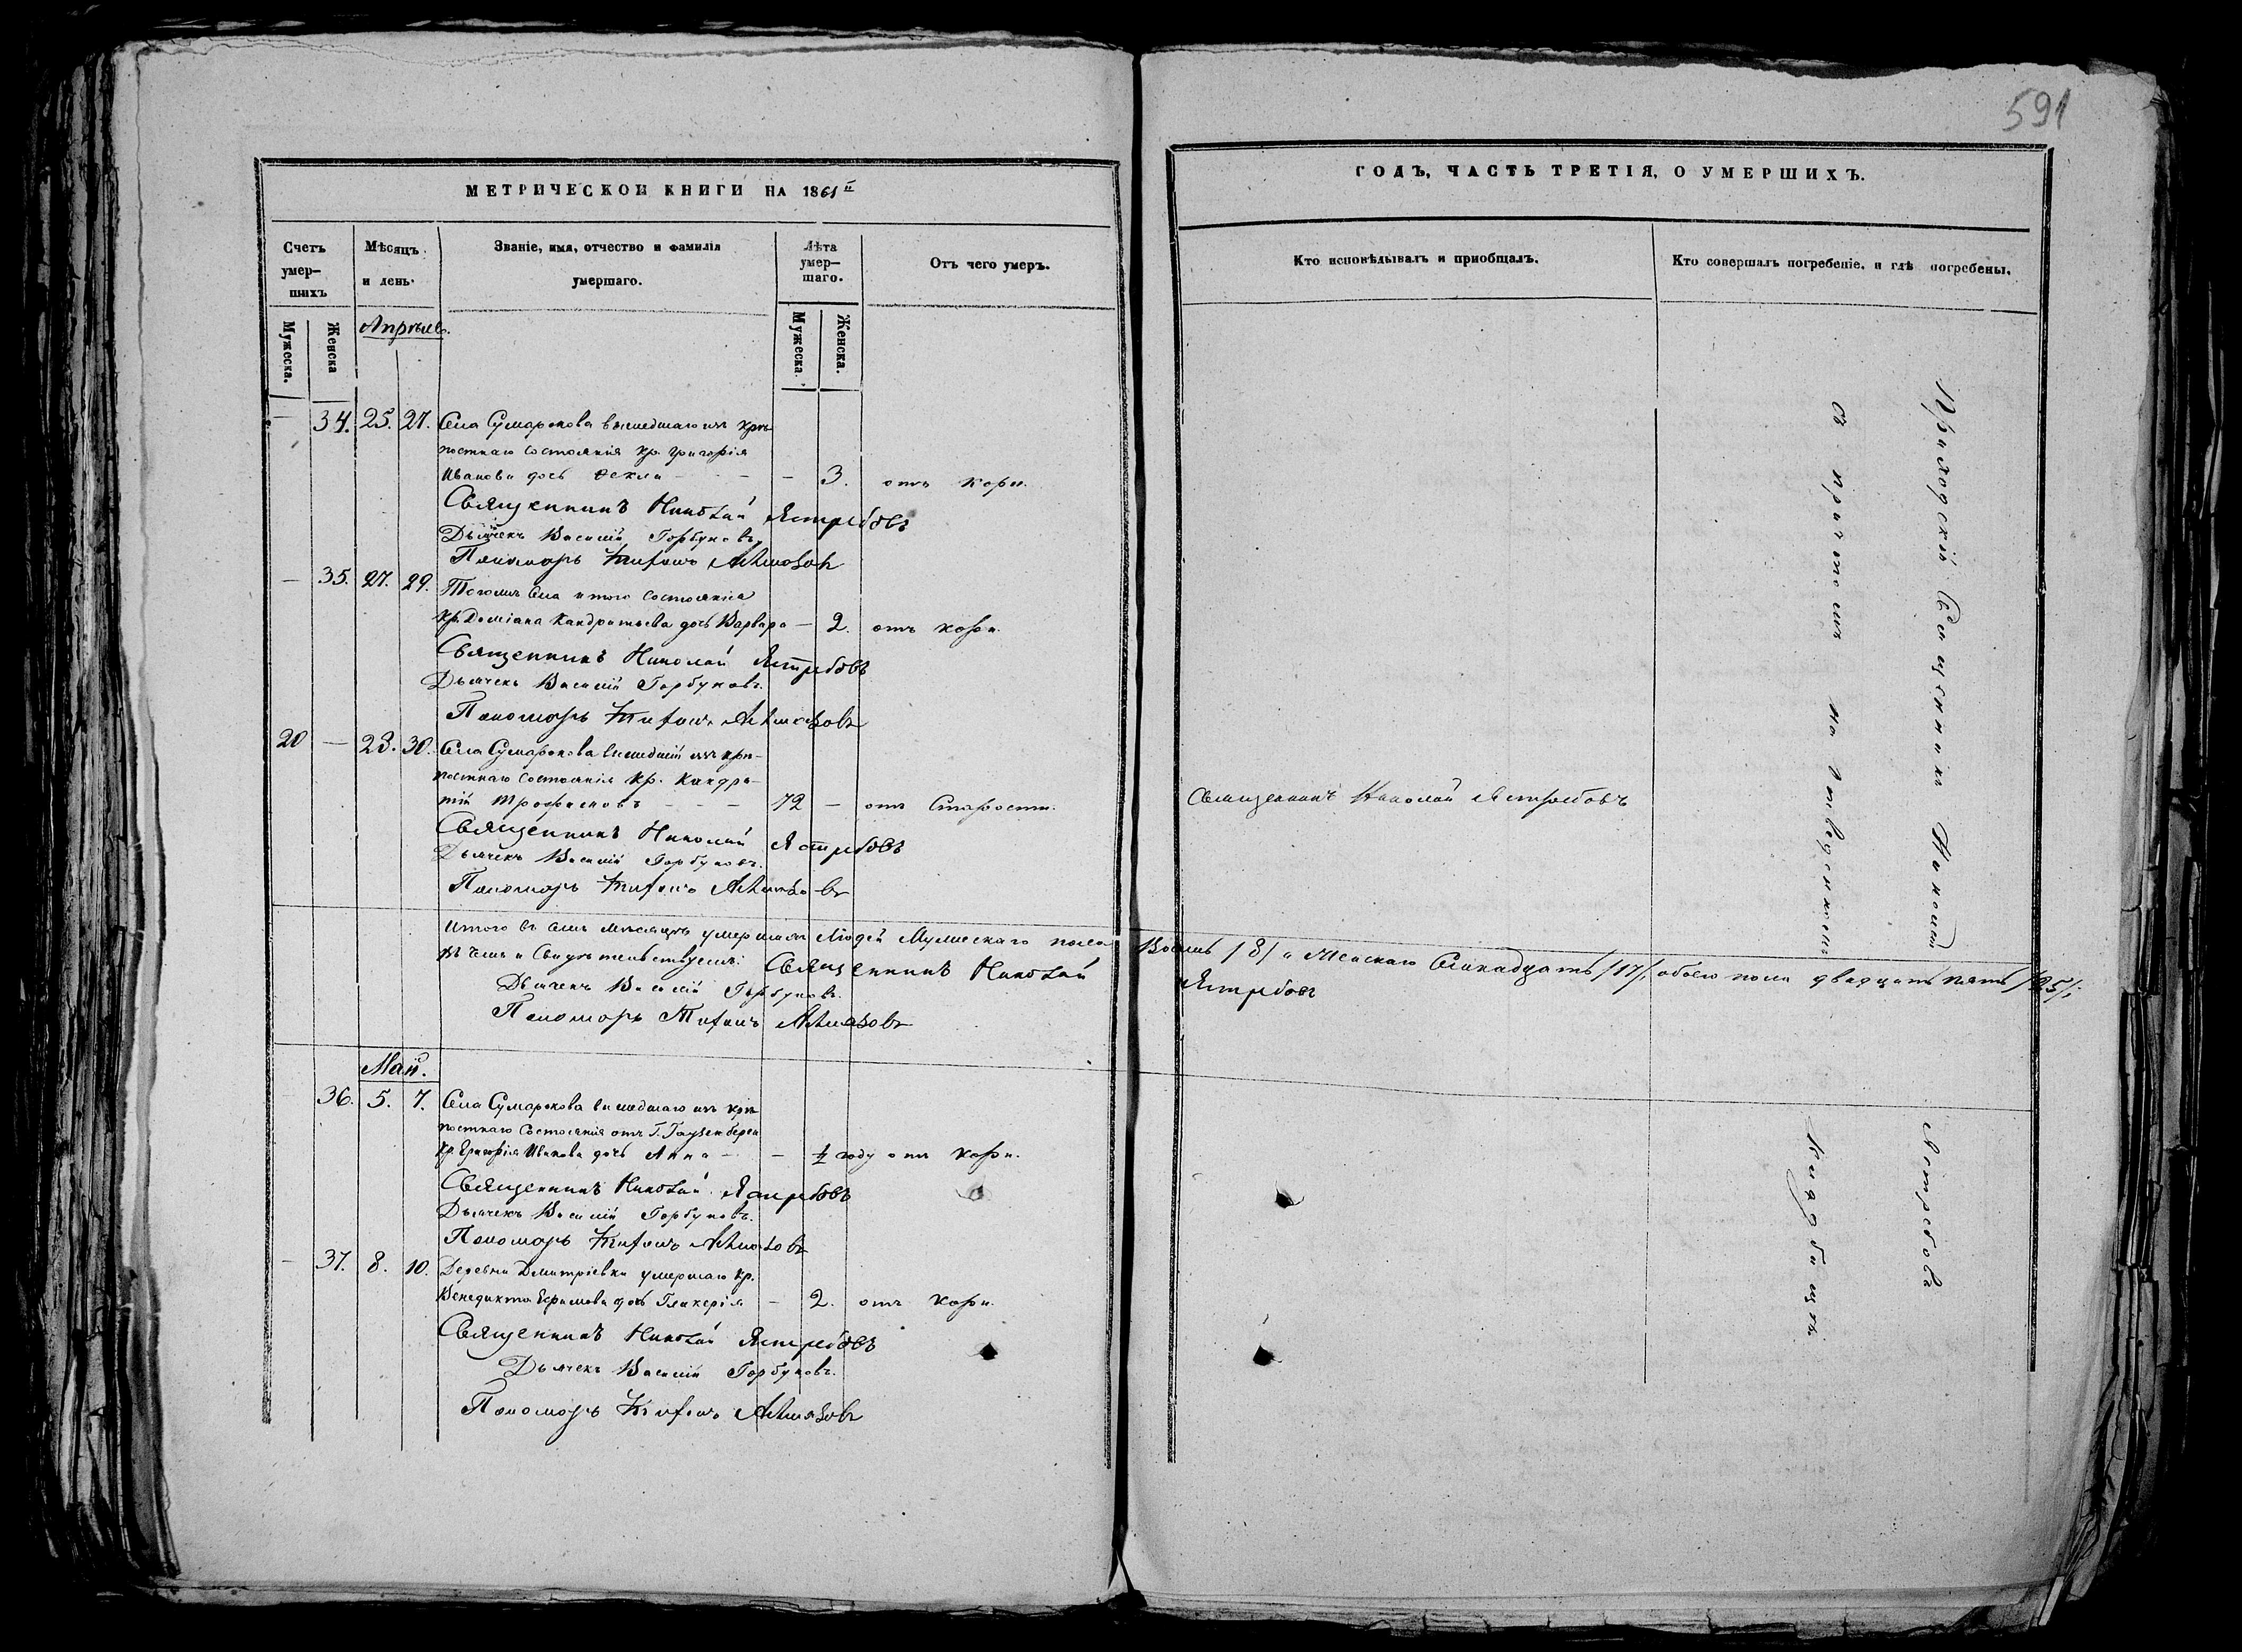 591
МЕТРИЧЕСКОЙ КНИГИ НА 1861й
Счетъ умер-шихъ
Мужеска.
Женска
Мѣсяцъ и день.
Званіе, имя, отчество и фамилія умершаго.
Лѣта умер-шаго.
Мужеска.
Женска.
Отъ чего умеръ.
Апрѣль.
— 34. 25. 27. Села Сумарокова вышедшаго изъ крѣ-
постнаго состоянія кр. Григорія
Иванова дочь Фекла — — 3. отъ кори.
Священникъ Николай Ястребовъ
Дьячекъ Василій Горбуновъ.
Пономарь Тифонъ
— 35. 27. 29. Тогожъ села и того состоянія
Кр. Доміана Кандратьева дочь Варвара — 2. отъ кори.
Священникъ Николай Ястребовъ
Дьячекъ Василій Горбуновъ.
Пономарь Тифонъ
20 — 28. 30. Села Сумарокова вышедшій изъ крѣ-
постнаго состоянія кр. Кандра-
тій Трофимовъ — — — 72 — отъ старости.
Священникъ Николай Ястребовъ
Дьячекъ Василій Горбуновъ.
Пономарь Тифонъ
Итого въ семъ мѣсяцѣ умершихъ людей мужескаго пола
въ чемъ и свидѣтельствуемъ: Священникъ Николай
Дьячекъ Василій Горбуновъ.
Пономарь Тифонъ
Май.
36. 5. 7. Села Сумарокова вышедшаго изъ крѣ-
постнаго состоянія отъ Г. Гаузенберга
Кр. Григорія Иванова дочь Анна — — ½ году отъ кори.
Священникъ Николай Ястребовъ
Дьячекъ Василій Горбуновъ.
Пономарь Тифонъ
— 37. 8. 10. Деревни Дмитріевки умершаго кр.
Венедикта Ефимова дочь Гликерія — 2. отъ кори.
Священникъ Николай Ястребовъ
Дьячекъ Василій Горбуновъ.
Пономарь Тифонъ
ГОДЪ, ЧАСТЬ ТРЕТІЯ, О УМЕРШИХЪ.
Кто исповѣдывалъ и пріобщалъ.
Кто совершалъ погребеніе, и гдѣ погребены.
Священникъ Николай Ястребовъ
Восемь /8/ и женскаго семнадцать /17/, обоего пола двадцать пять /25/;
Ястребовъ
Приходскій Священникъ Николай Ястребовъ
съ причтомъ на отведенномъ кладбищѣ.